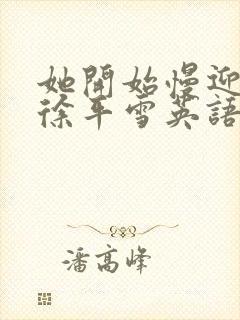 她開始慢迎
徐年雪英語
潘高峰